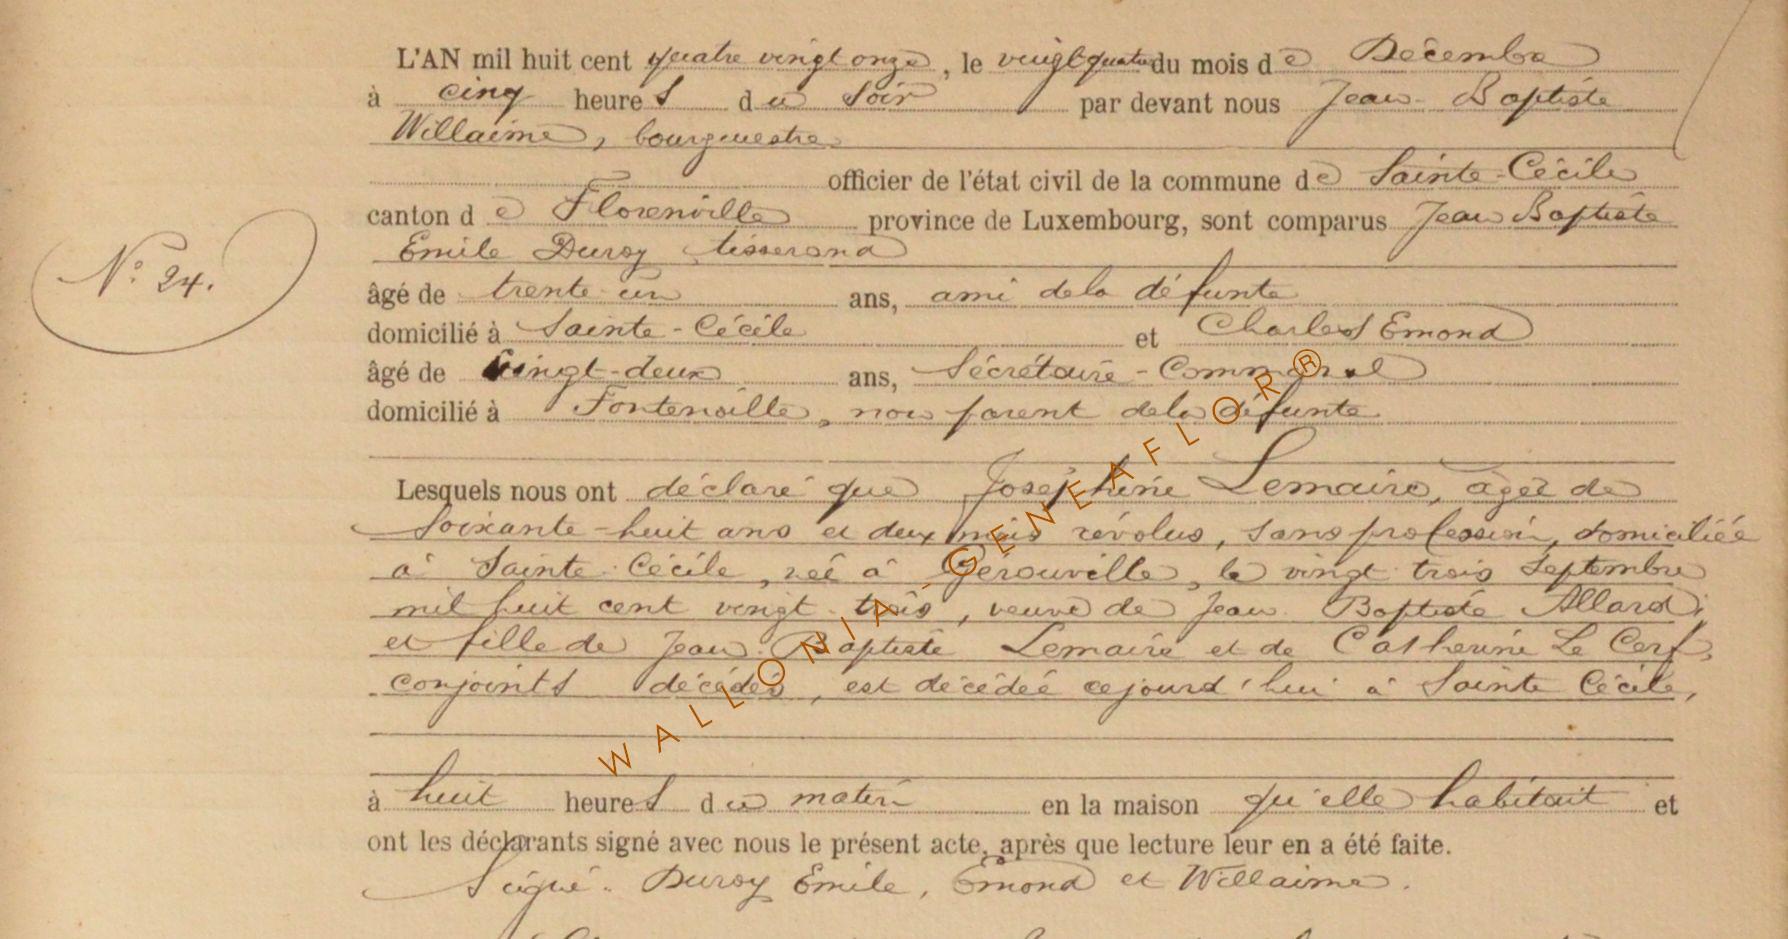 L'AN mil huit cent quatre vingt onze, le vingt quatre du mois de Décembre
à cinq heures du soir par devant nous Jean-Baptiste
Willaime, bourgmestre
officier de l'état civil de la commune de Sainte-Cécile
canton de Florenville province de Luxembourg, sont comparus Jean Baptiste
Emile Duroy tisserand
N° 24.
âgé de trente-un ans, ami de la défunte
domicilié à Sainte-Cécile et Charles Emond
âgé de vingt-deux ans, Sécrétaire-Communal
domicilié à Fontenoille, non parent de la défunte
Lesquels nous ont déclaré que Joséphine Lemaire, agée de
soixante-huit ans et deux mois révolus, sans profession, domiciliée
à Sainte-Cécile, née à Gerouville, le vingt trois Septembre
mil huit cent vingt-trois, veuve de Jean Baptiste Allard,
et fille de Jean-Baptiste Lemaire et de Catherine Le Cerf,
conjoints décédés, est décédée cejourd'hui à Sainte Cécile,
à huit heures du matin en la maison qu'elle habitait et
ont les déclarants signé avec nous le présent acte, après que lecture leur en a été faite.
Signé. Duroy Emile, Emond et Willaime.
WALLONIA-GENEAFLOR®